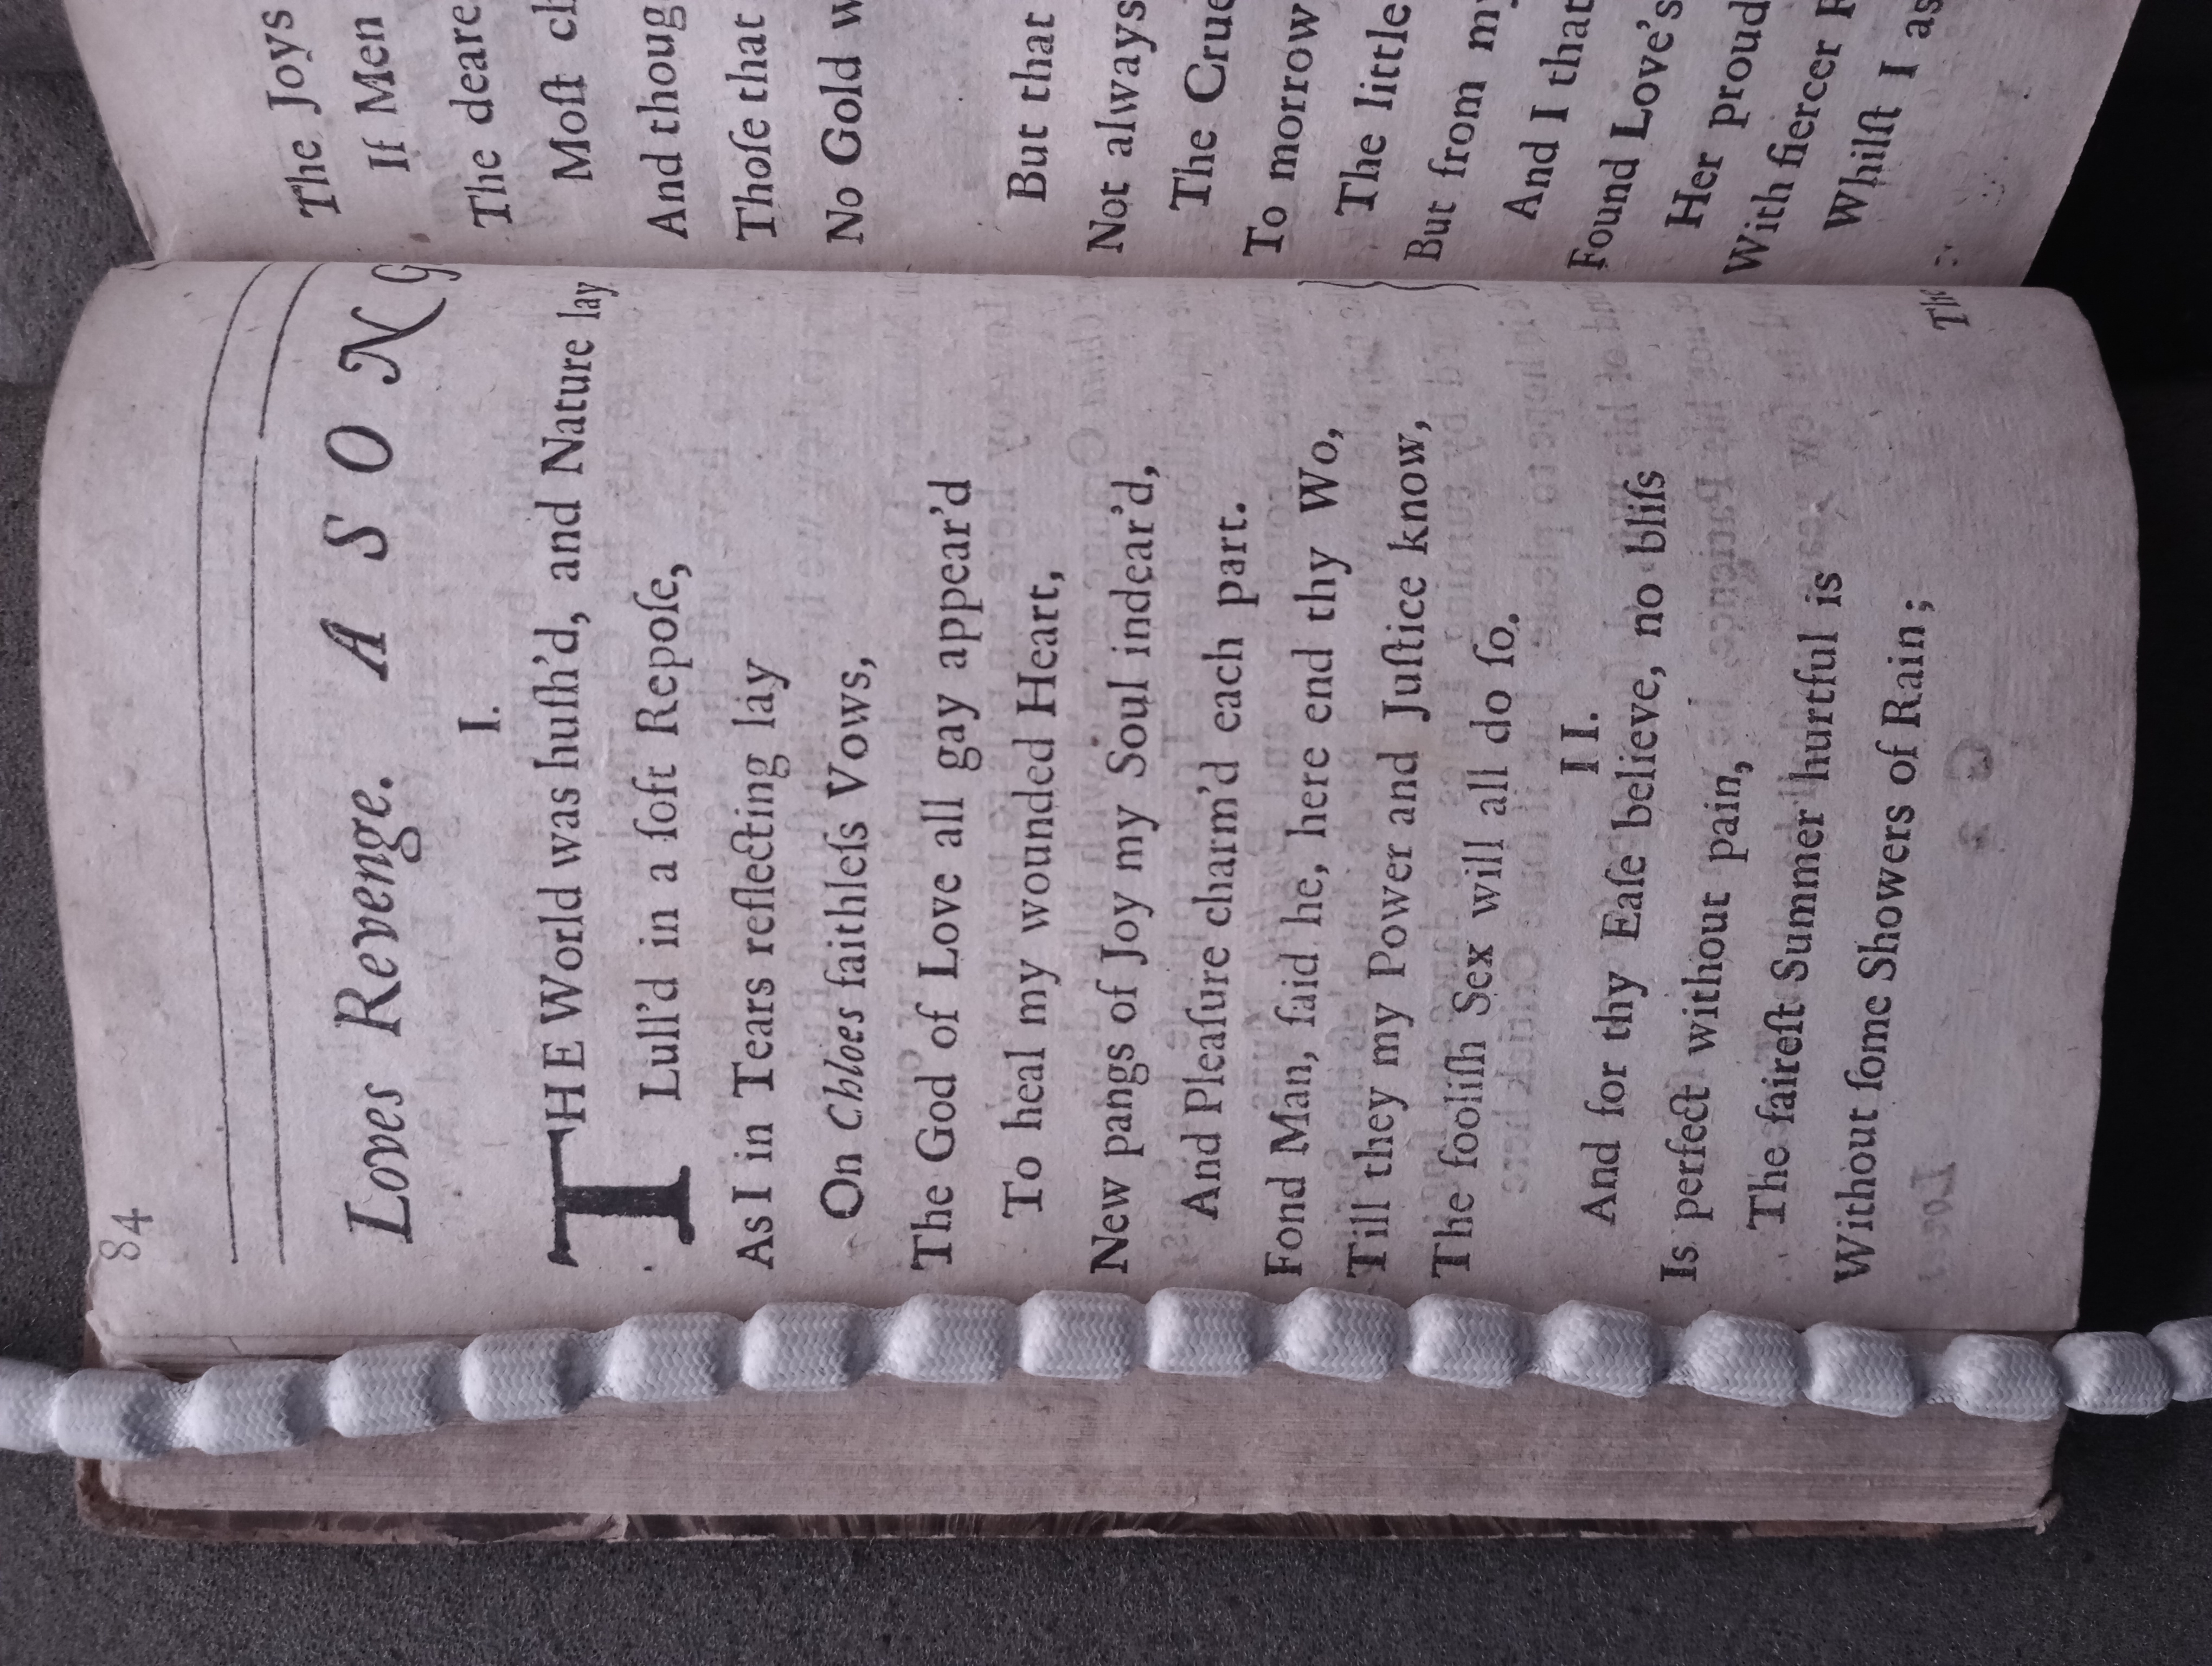 84
Loves Revenge. A SONG
I.
THE World was huſh'd, and Nature lay
Lull'd in a ſoft Repoſe,
As I in Tears reflecting lay
On Chloes faithleſs Vows,
The God of Love all gay appear'd
To heal my wounded Heart,
New pangs of Joy my Soul indear'd,
And Pleaſure charm'd each part.
Fond Man, ſaid he, here end thy Wo,
Till they my Power and Juſtice know,
The fooliſh Sex will all do ſo.
II.
And for thy Eaſe believe, no bliſs
Is perfect without pain,
The faireſt Summer hurtful is
Without ſome Showers of Rain;
The
The Joys
If Men
The deare
Moſt
And thoug
Thoſe that
No Gold
But that
Not always
The Crue
To morrow
The little
But from my
And I that
Found Love's
Her proud
With fiercer
Whilſt I as